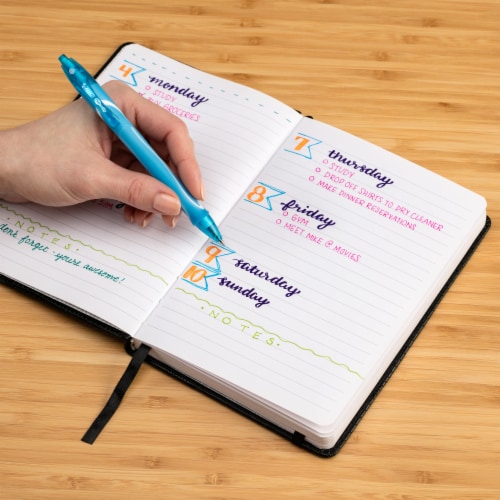 4 monday
STUDY
BUY GROCERIES
NOTES
dont forget - you're awesome!
7 thursday
STUDY
DROP OFF SHIRTS TO DRY CLEANER
MAKE DINNER RESERVATIONS
8 friday
GYM
MEET MIKE @ MOVIES
9 saturday
10 sunday
· NOTES ·